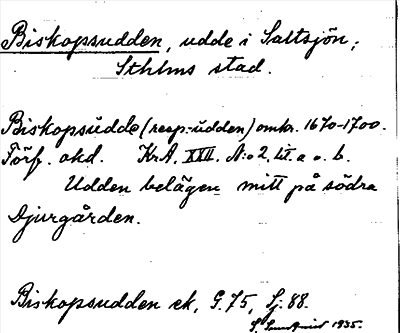 Biskopsudden, udde i Saltsjön,
Sthlms stad.
Biskopsudde (resp.-udden) omkr. 1670-1700.
Förf. okd. Kr.A. XXII. A:o 2, lit. a o. b.
Udden belägen mitt på södra
Djurgården.
Biskopsudden ek, G.75, Sj:88.
S. 1935.